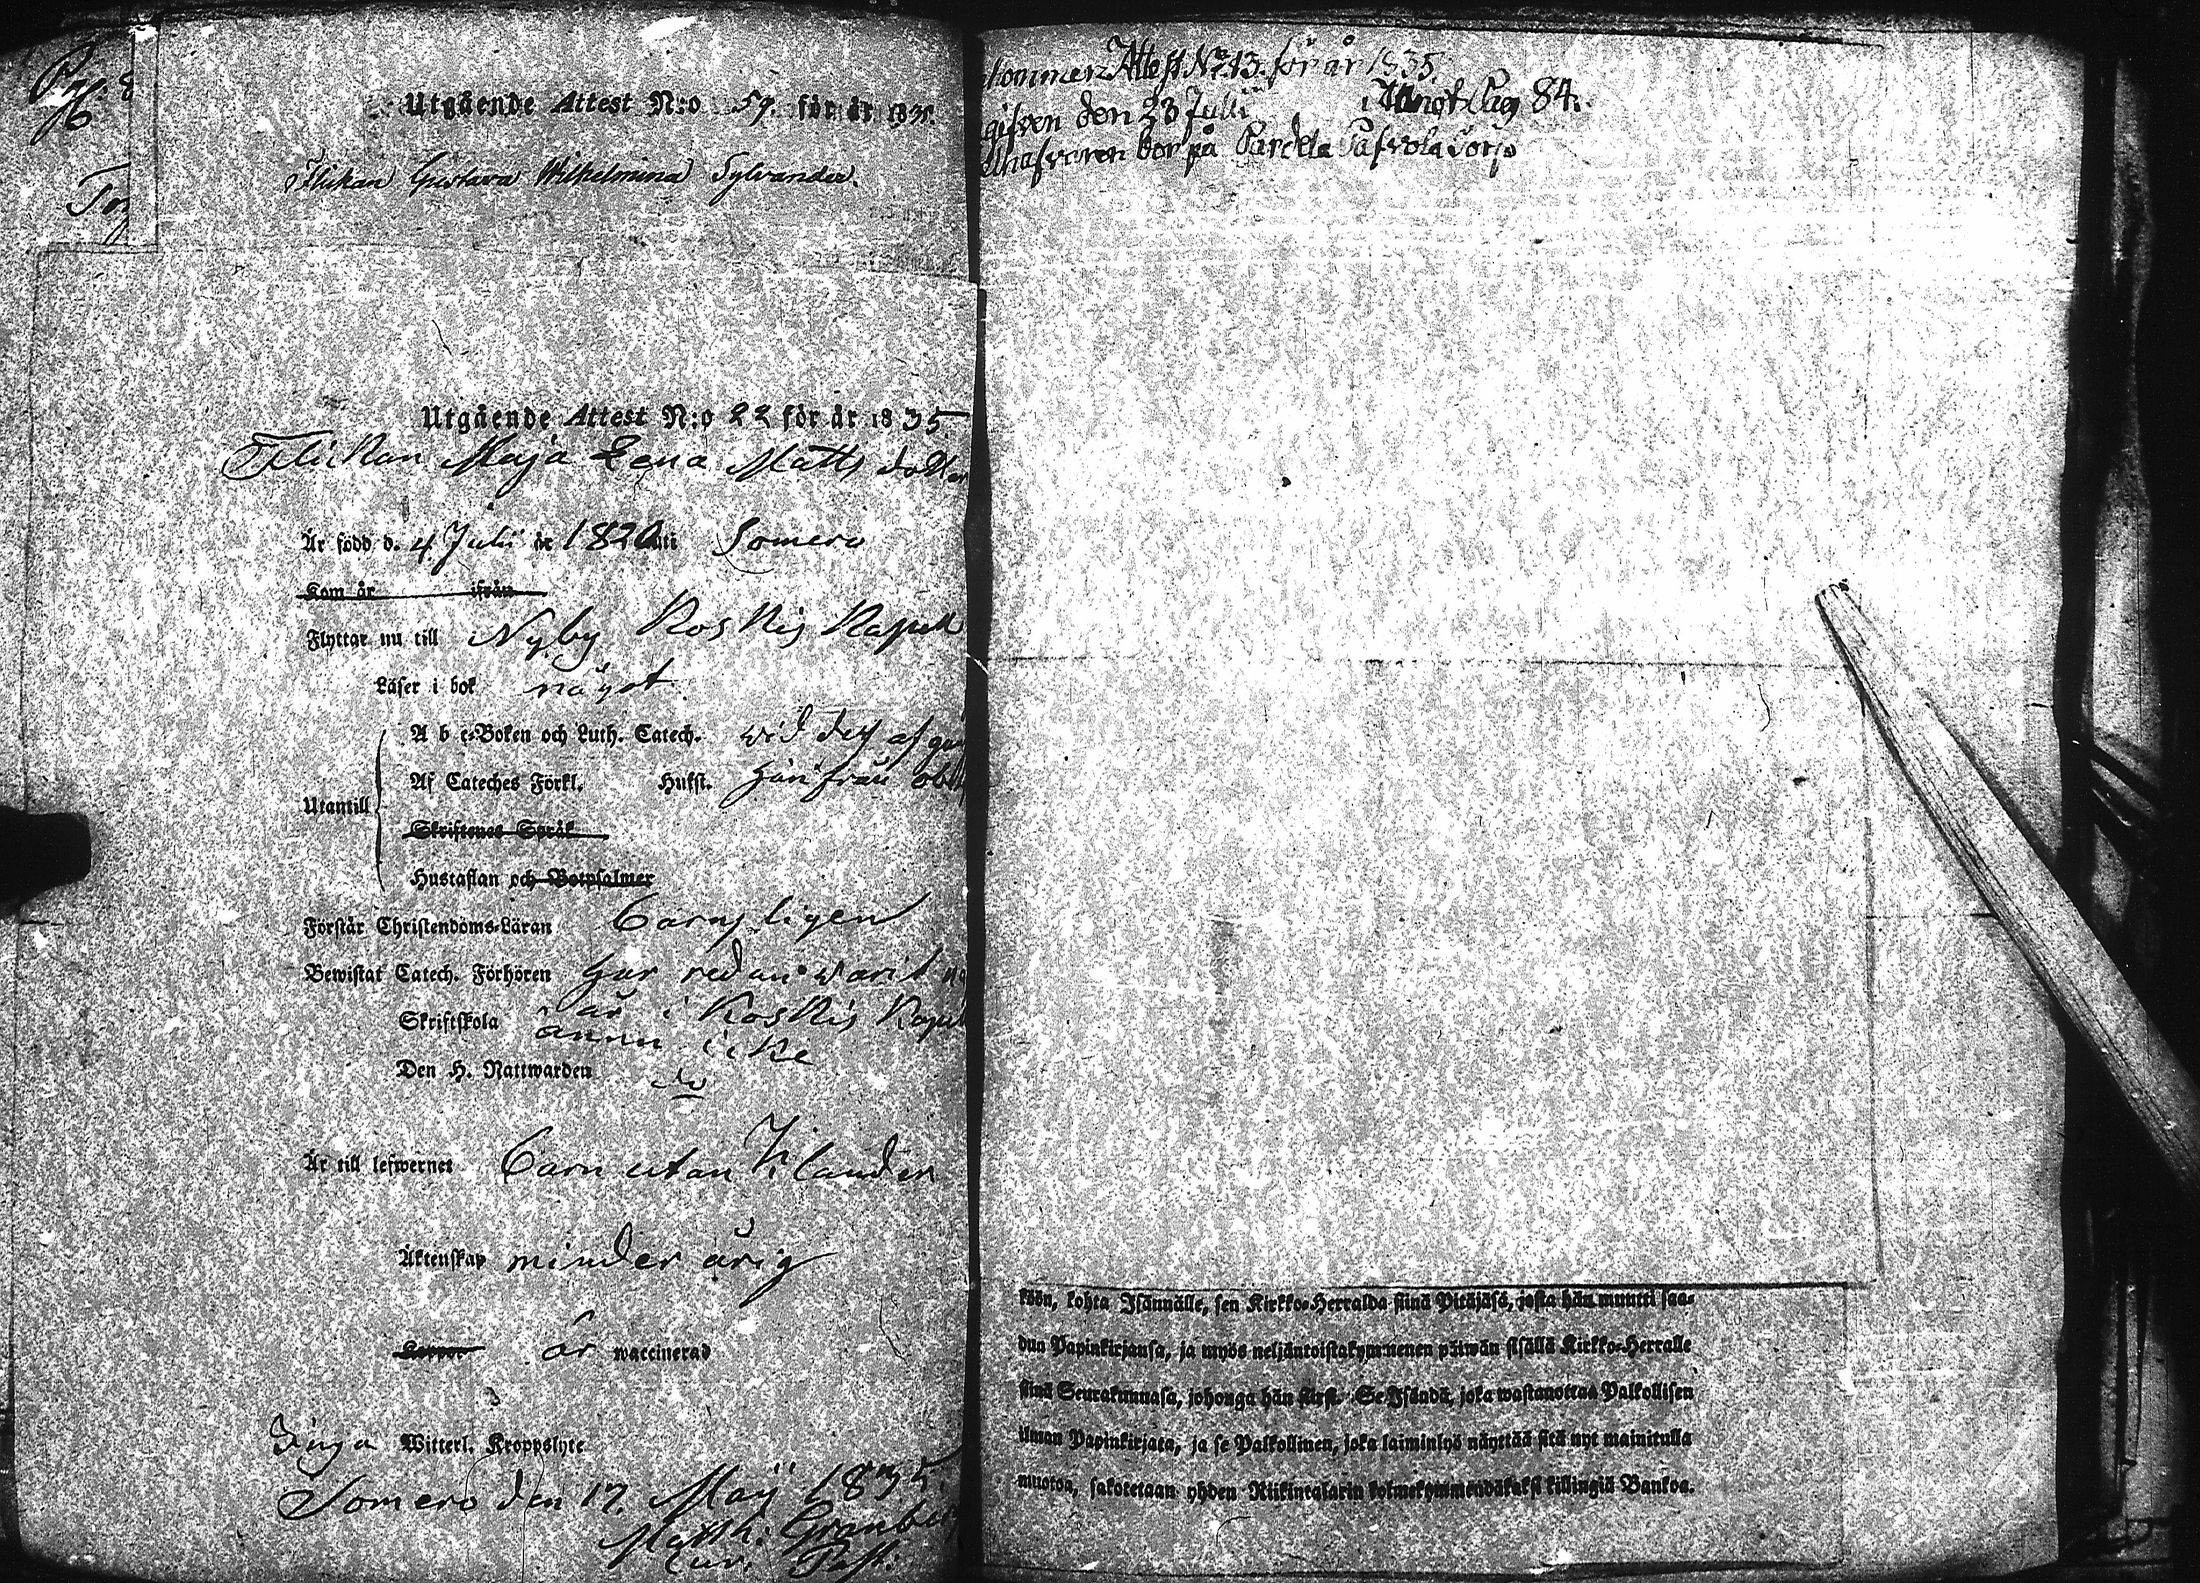 Pag. 8
Utgående Attest N:o 59. för år 1835.
Flickan Gustava Wilhelmina Sylvander.
Utgående Attest N:o 22 för år 1835
Flickan Maja Lena Matts dotter
Är född d. 4 Julii år 1820 uti Somero
Kom år ifrån
Flyttar nu till Nyby Koskis Kapell
Läser i bok något.
A b c-Boken och Luth. Catech. wid des af
Af Cateches Förkl. Hufst. härifrån
Utantill
Skriftenes Språk
Hustaflan och Botpsalmer
Förstår Christendoms-Läran barnsligen
Bewistat Catech. Förhören har redan warit
år i Koskis Kapell
Skriftskola ännu icke
Den H. Nattwarden do
Är till lefwernet barn utan klander
Äktenskap minder årig
Koppor är waccinerad
Inga Witterl. Kroppslyte
Somero den 17. Maij 1835.
Matth: Granberg
Past:
kommen Attest No. 13. för år 1835.
gifven den 23 Julii Pag 84.
bor på
köön, kohta Isännälle, sen Kirkko-Herralda siinä Pitäjäsä, josta hän muutti saa-
dun Papinkirjansa, ja myös neljäntoistakymmenen päiwän sisällä Kirkko-Herralle
siinä Seurakunnasa, johonga hän siirst. Se Isändä, joka wastanottaa Palkollisen
ilman Papinkirjata, ja se Palkollinen, joka laiminlyö näyttää sitä nyt mainitulla
muotoa, sakotetaan yhden Riikintalarin kolmekymmendäkaksi killingiä Bankoa.